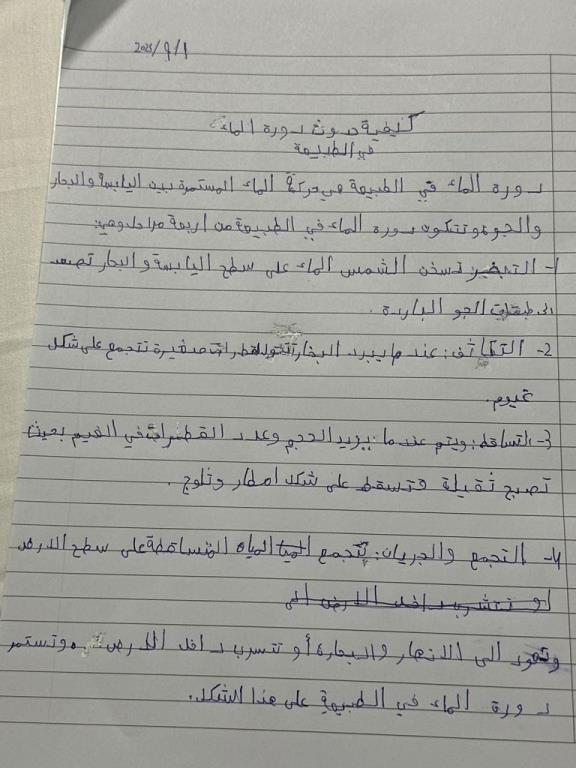 2025/9/1
كيفية حدوث دورة الماء
في الطبيعة
دورة الماء في الطبيعة هي حركة الماء المستمرة بين اليابسة والبحار
والجو وتتكون دورة الماء في الطبيعة من اربعة مراحل وهي:
1- التبخير تسخن الشمس الماء على سطح اليابسة والبحار تصعد
الى طبقات الجو الباردة.
2- التكاثف: عندما يبرد البخار قطرات صغيرة تتجمع على شكل
غيوم.
3- التساقط: ويتم عندما: يزيد الحجم وعدد القطرات في الغيم بحيث
تصبح ثقيلة فتسقط على شكل امطار وثلوج.
4- التجمع والجريان: تتجمع المياه المتساقطة على سطح الارض
او تتشرب داخل الارض الى
وتعود الى الانهار والبحار أو تتسرب داخل الارض وتستمر
دورة الماء في الطبيعة على هذا الشكل.